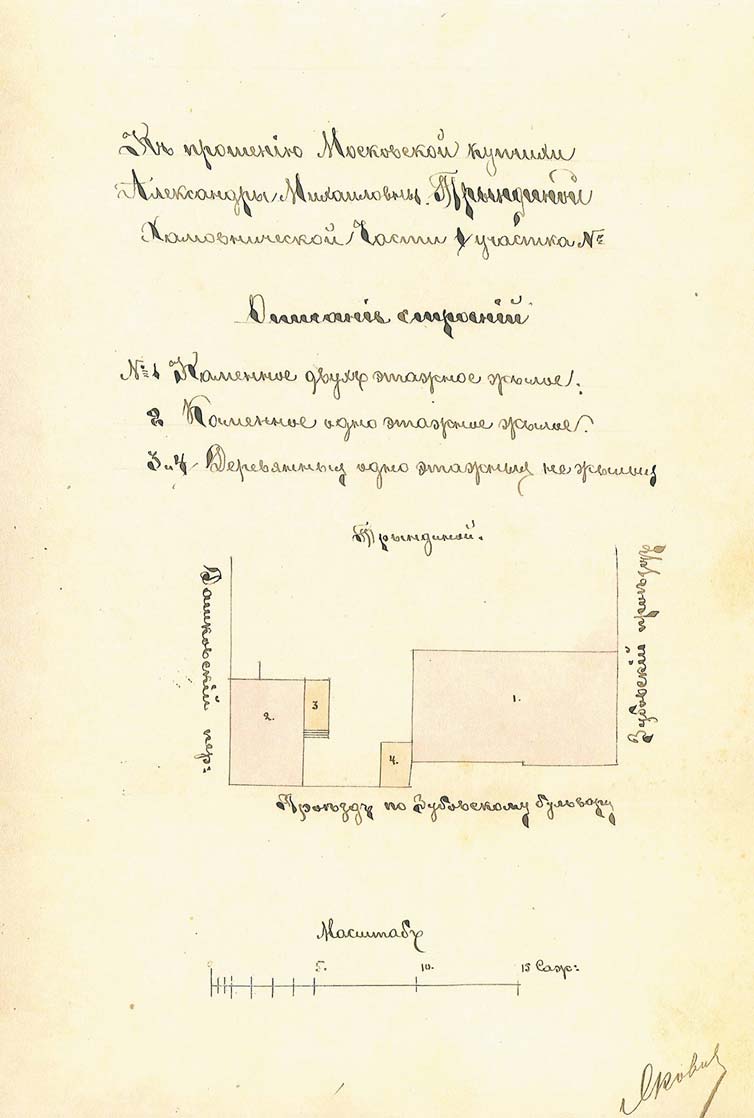 Къ прошенію Московской купчихи
Александры Михаиловны Трындиной
Хамовнической Части 1 участка №
Описаніе строеній
№ 1 Каменное двухъ этажное жылое.
2 Каменное одно этажное жылое.
3 и 4 Деревянныя одно этажныя не жылыя
Трындиной.
Вашковскій пер:
Зубовскій
1.
2.
3
4.
Проѣздъ по Зубовскому бульвару
Масштабъ
0 5. 10. 15 Саж: